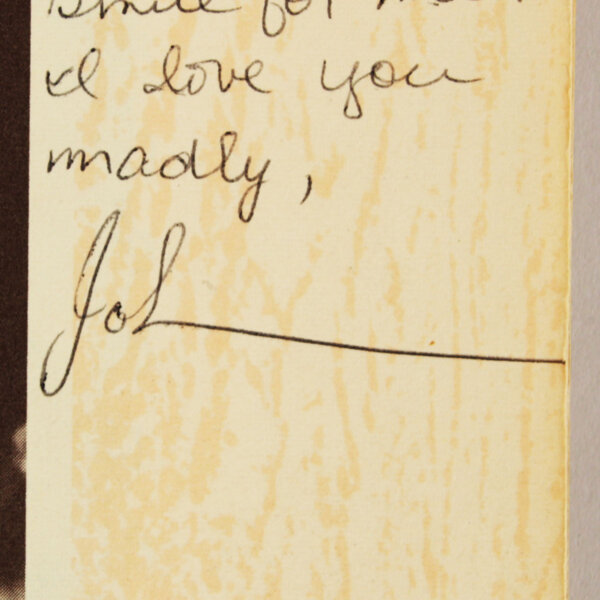 Smile for me.
I love you
madly,
Joh